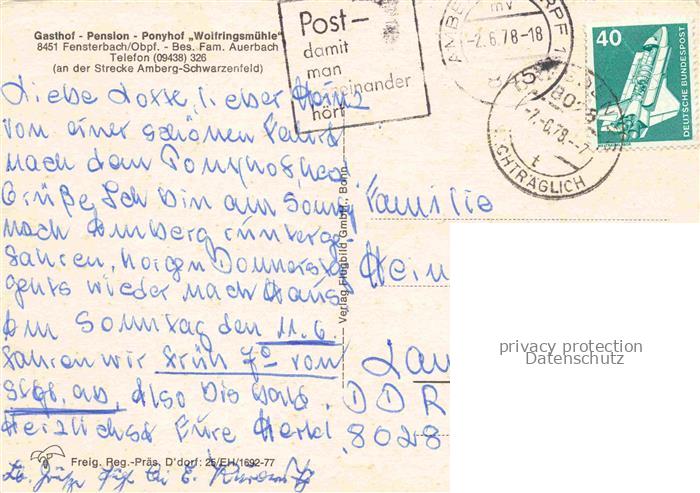 Gasthof - Pension - Ponyhof „Wolfringsmühle"
8451 Fensterbach/Obpf. - Bes. Fam. Auerbach
Telefon (09438) 326
(an der Strecke Amberg-Schwarzenfeld)
Post-
damit
man
einander
hört
AMBE RPF 1
mv
-2.6.78-18
-7.6.78.--7
t
CHTRÄGLICH
40
DEUTSCHE BUNDESPOST
Liebe Lotte, lieber Heinz
von einer schönen Fahrt
nach dem Ponyhof
Grüße, Ich bin am Sonn
nach Amberg
fahren, morgen Donnerst
gehts wieder nach Haus
Am Sonntag den 11.6.
fahren wir früh 7º von
ab, Also bis bald.
Herzlichst Eure
Freig. Reg.-Präs. D'dorf: 25/EH/1692-77
Verlag Flugbild GmbH., Bonn
Familie
Hein
DDR
8028
privacy protection
Datenschutz